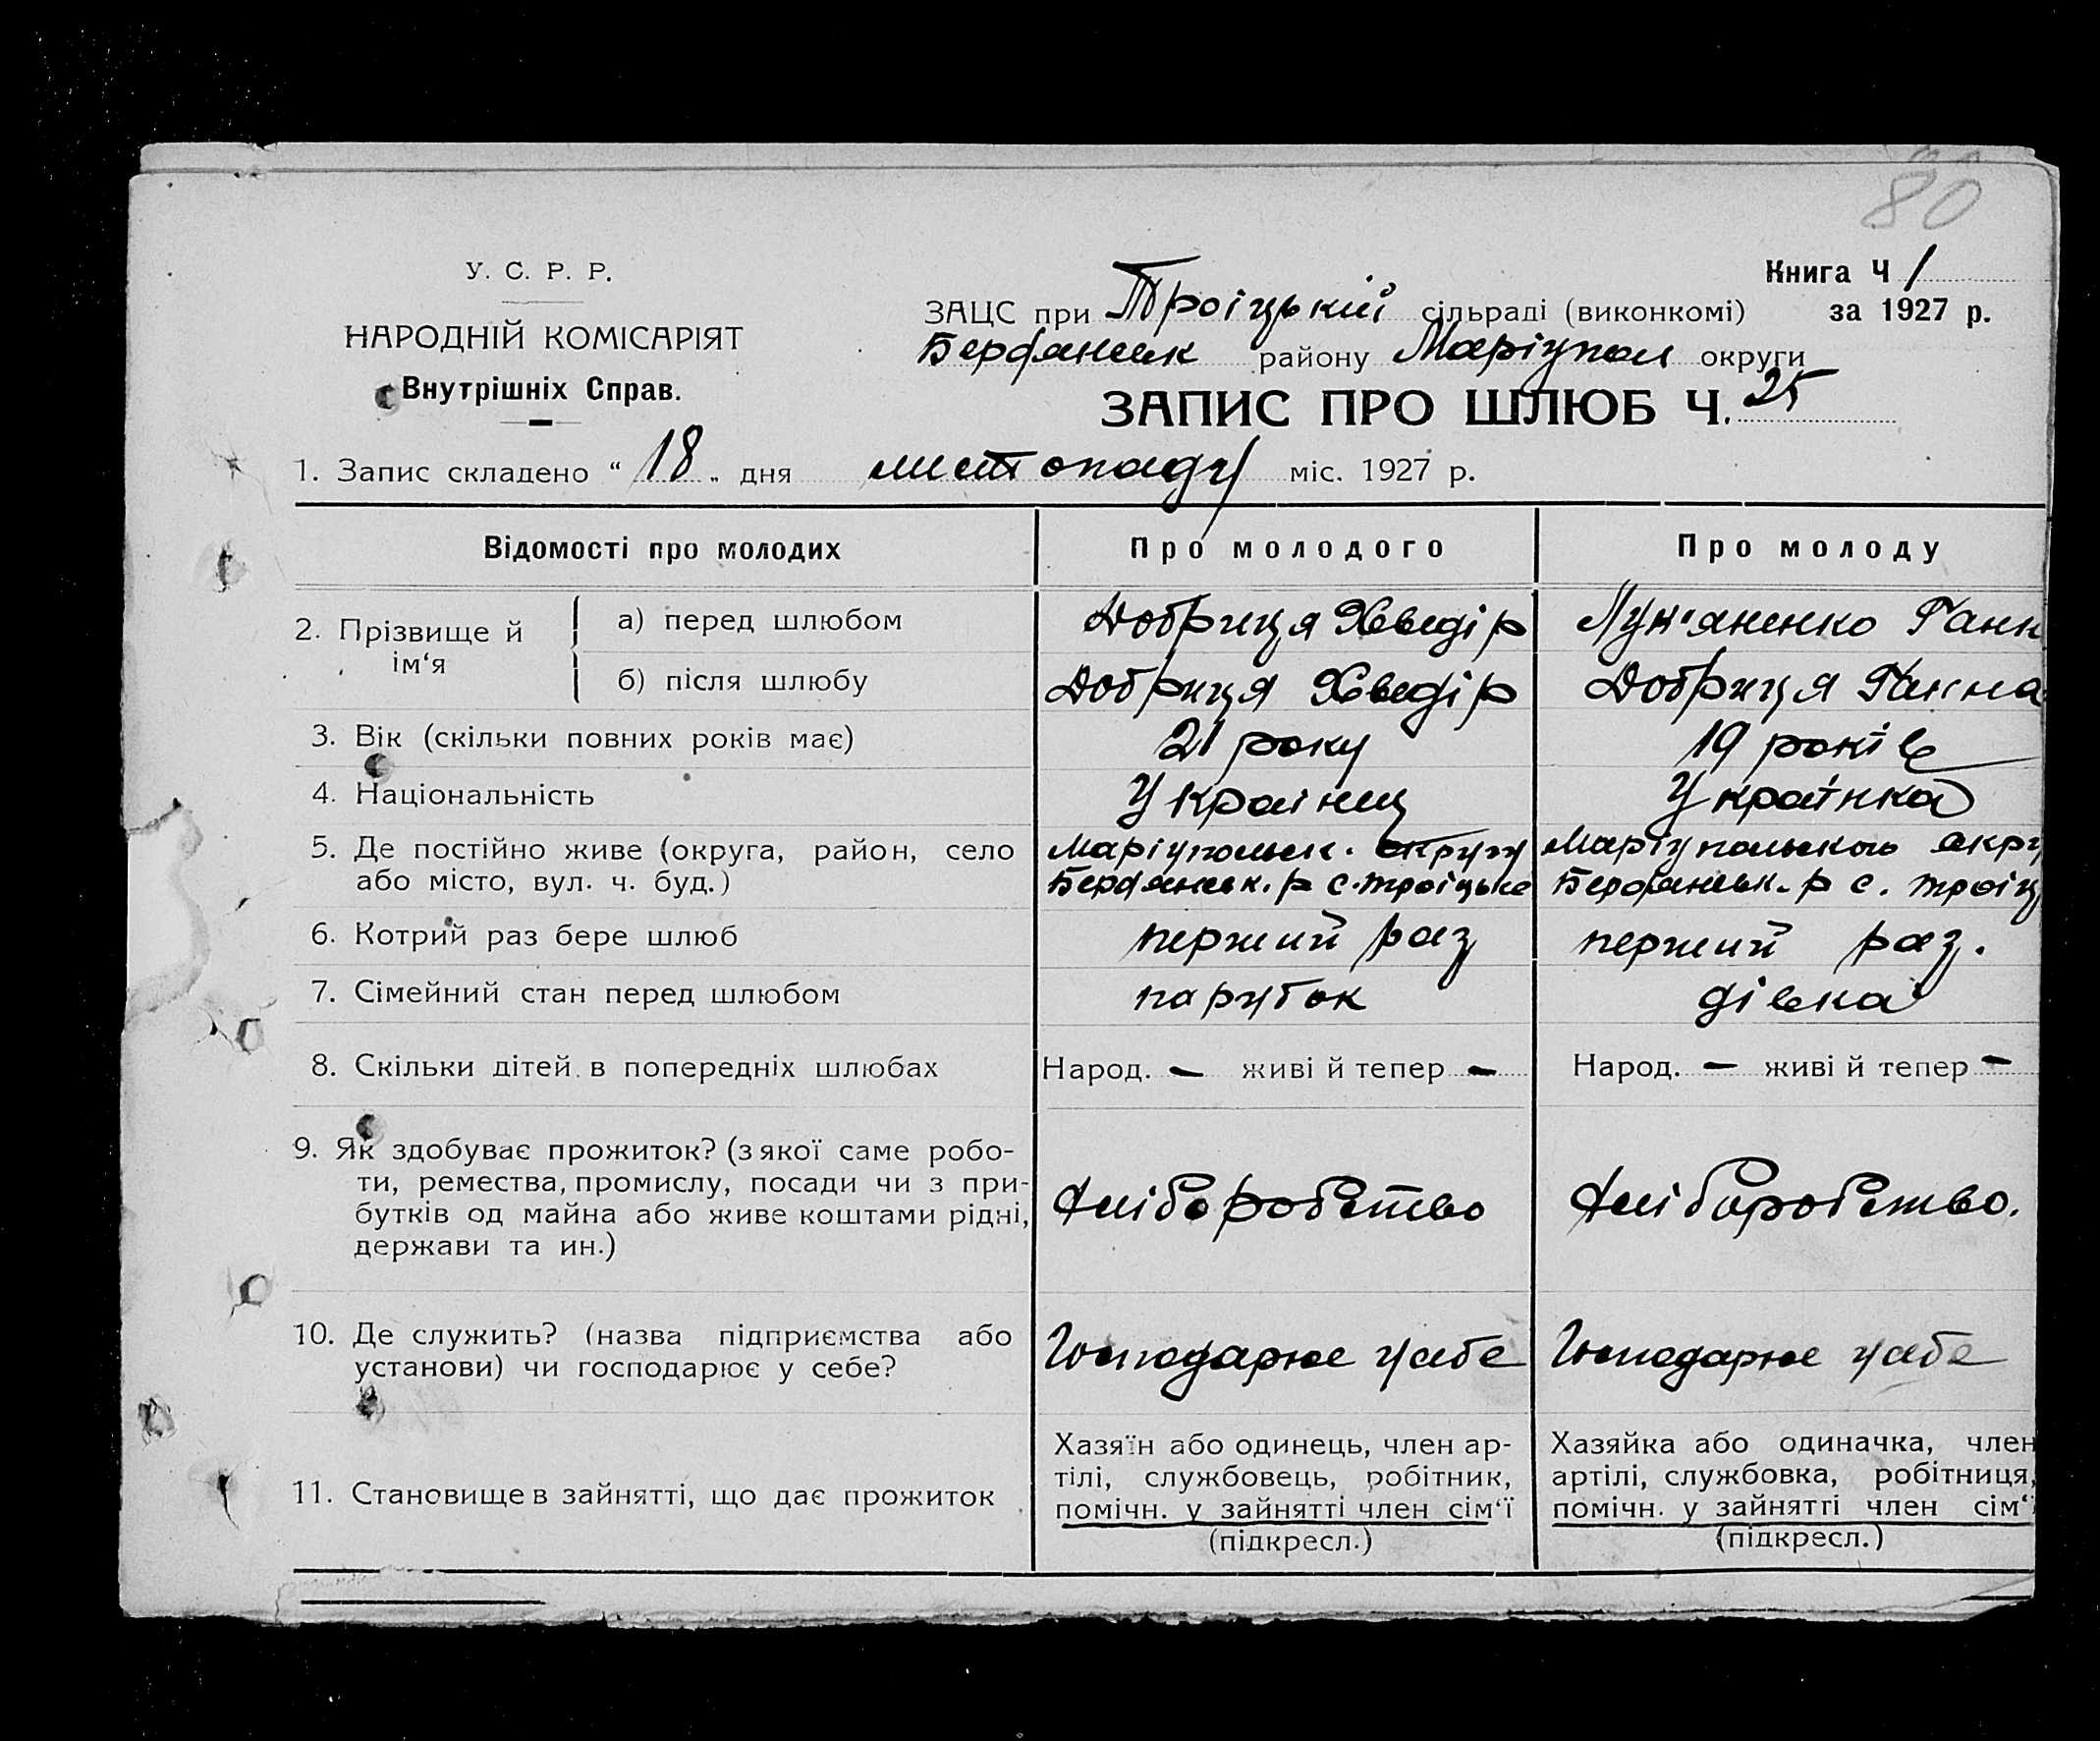 80
У. С. Р. Р.
НАРОДНІЙ КОМІСАРІЯТ
Внутрішніх Справ.
Книга Ч 1
за 1927 р.
ЗАЦС при Троіцькій сільраді (виконкомі)
Бердянськ району Маріупол округи
ЗАПИС ПРО ШЛЮБ Ч. 25
1. Запис складено “ 18 „ дня листопаду міс. 1927 р.
Відомості про молодих Про молодого Про молоду
2. Прізвище й ім‘я
а) перед шлюбом Добриця Хведір Лук'яненко Ганн
б) після шлюбу Добриця Хведір Добриця Ганна
3. Вік (скільки повних років має) 21 року 19 років
4. Національність Украінец Украінка
5. Де постійно живе (округа, район, село
або місто, вул. ч. буд.)
Маріупольськ. округу
Бердянськ. р с. Троіцьке
Маріупольською окру
Бердянськ. р с. Троіц
6. Котрий раз бере шлюб перший раз перший раз.
7. Сімейний стан перед шлюбом парубок дівка
8. Скільки дітей в попередніх шлюбах Народ. – живі й тепер – Народ. – живі й тепер –
9. Як здобуває прожиток? (з якої саме робо-
ти, ремества, промислу, посади чи з при-
бутків од майна або живе коштами рідні,
держави та ин.)
Хліборобство Хліборобство.
10. Де служить? (назва підприємства або
установи) чи господарює у себе?
Господарює у себе Господарює у себе
11. Становище в зайнятті, що дає прожиток
Хазяїн або одинець, член ар-
тілі, службовець, робітник,
помічн. у зайнятті член сім‘ї
(підкресл.)
Хазяйка або одиначка, член
артілі, службовка, робітниця,
помічн. у зайнятті член сім‘ї
(підкресл.)